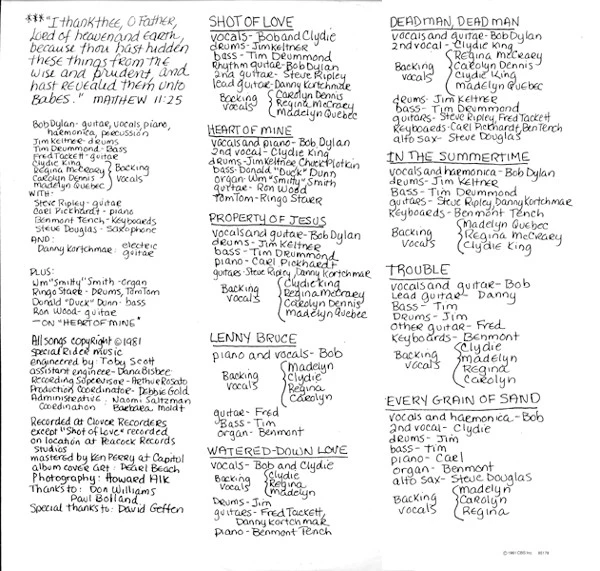 ***"I thank thee, O Father,
Lord of heaven and Earth,
because thou hast hidden
these things from the
wise and prudent, and
hast revealed them unto
Babes." MATTHEW 11:25
Bob Dylan - guitar, vocals, piano,
harmonica, percussion
Jim Keltner - drums
Tim Drummond - Bass
Fred Tackett - guitar
Clydie King
Regina McCreary
Carolyn Dennis
Madelyn Quebec
Backing
Vocals
WITH:
Steve Ripley - guitar
Carl Pickhardt - piano
Benmont Tench - Keyboards
Steve Douglas - Saxophone
AND:
Danny Kortchmar: electric
guitar
PLUS:
Wm "Smitty" Smith - Organ
Ringo Starr - Drums, TomTom
Donald "Duck" Dunn - bass
Ron Wood - guitar
— ON "HEART OF MINE"
All songs copyright © 1981
Special Rider Music
engineered by: Toby Scott
assistant engineer - Dana Bisbee
Recording Supervisor - Arthur Rosato
Production Coordinator - Debbie Gold
Administrative: Naomi Saltzman
Coordination Barbara Moldt
Recorded at Clover Recorders
except "Shot of Love" recorded
on location at Peacock Records
Studios
mastered by Ken Perry at Capitol
album cover art: Pearl Beach
Photography: Howard Alk
Thanks to: Don Williams
Paul Bolland
Special thanks to: David Geffen
SHOT OF LOVE
vocals - Bob and Clydie
drums - Jim Keltner
bass - Tim Drummond
Rhythm guitar - Bob Dylan
2nd guitar - Steve Ripley
lead guitar - Danny Kortchmar
Backing
vocals
Carolyn Dennis
Regina McCraey
Madelyn Quebec
HEART OF MINE
vocals and piano - Bob Dylan
2nd vocal - Clydie King
drums - Jim Keltner Chuck Plotkin
bass - Donald "Duck" Dunn
organ - Wm "Smitty" Smith
guitar - Ron Wood
TomTom - Ringo Starr
PROPERTY OF JESUS
vocals and guitar - Bob Dylan
drums - Jim Keltner
bass - Tim Drummond
piano - Carl Pickhardt
guitars - Steve Ripley, Danny Kortchmar
Backing
vocals
Clydie King
Regina McCraey
Carolyn Dennis
Madelyn Quebec
LENNY BRUCE
piano and vocals - Bob
Backing
vocals
Madelyn
Clydie
Regina
Carolyn
guitar - Fred
Bass - Tim
organ - Benmont
WATERED-DOWN LOVE
vocals - Bob and Clydie
Backing
vocals
Clydie
Regina
Madelyn
Drums - Jim
guitars - Fred Tackett,
Danny Kortchmar
piano - Benmont Tench
DEAD MAN, DEAD MAN
vocals and guitar - Bob Dylan
2nd vocal - Clydie King
Backing
vocals
Regina McCreary
Carolyn Dennis
Clydie King
Madelyn Quebec
drums - Jim Keltner
bass - Tim Drummond
guitars - Steve Ripley, Fred Tackett
Keyboards - Carl Pickhardt, Ben Tench
alto sax - Steve Douglas
IN THE SUMMERTIME
vocals and harmonica - Bob Dylan
drums - Jim Keltner
Bass - Tim Drummond
guitars - Steve Ripley, Danny Kortchmar
Keyboards - Benmont Tench
Backing
vocals
Madelyn Quebec
Regina McCreary
Clydie King
TROUBLE
vocals and guitar - Bob
Lead guitar - Danny
Bass - Tim
Drums - Jim
other guitar - Fred
Keyboards - Benmont
Backing
vocals
Clydie
Madelyn
Regina
Carolyn
EVERY GRAIN OF SAND
vocals and harmonica - Bob
2nd vocal - Clydie
drums - Jim
bass - Tim
piano - Carl
organ - Benmont
alto sax - Steve Douglas
Backing
vocals
Madelyn
Carolyn
Regina
© 1981 CBS Inc.